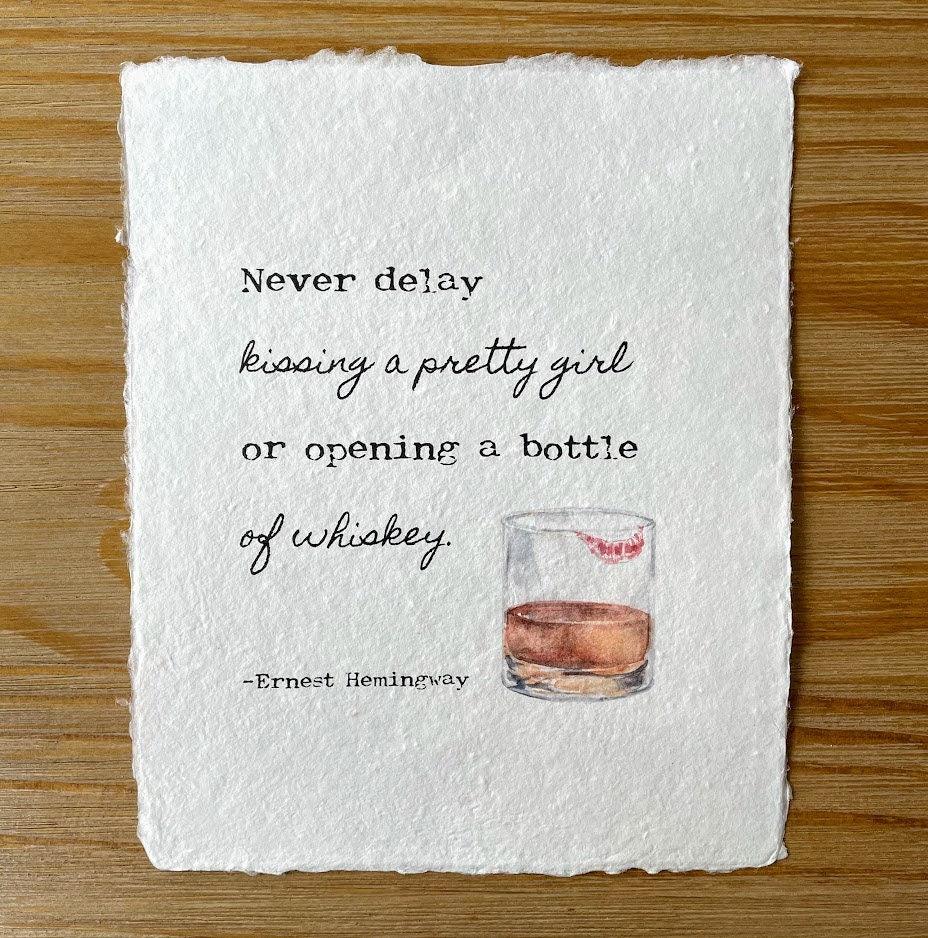 Never delay
kissing a pretty girl
or opening a bottle
of whiskey.
-Ernest Hemingway